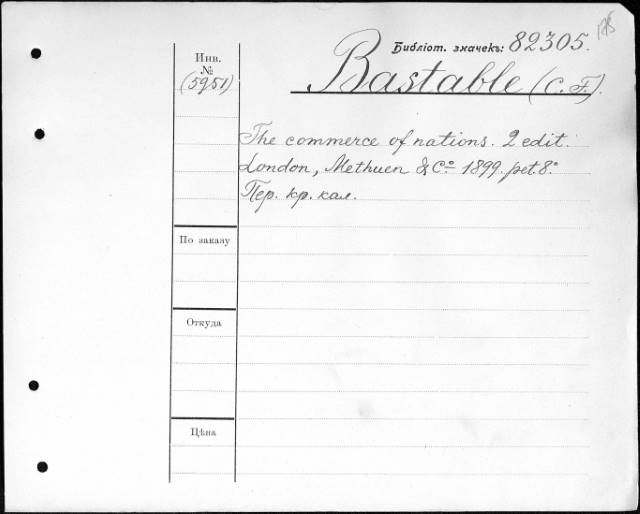 175
Библіот. значекъ: 82305.
Инв.
№
(5951)
Bastable (C. F.).
The commerce of nations. 2 edit.
London, Methuen & Cº 1899. pet. 8.º
Пер. кр. кал.
По заказу
Откуда
Цѣна